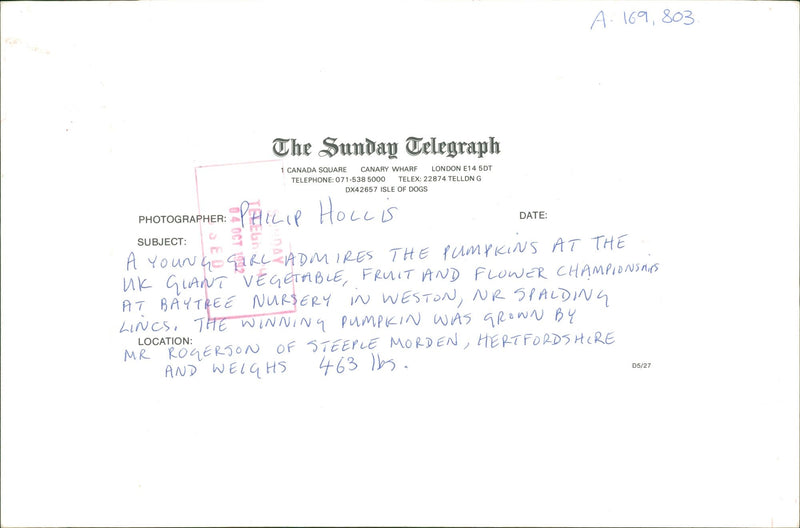 A. 169,803.
The Sunday Telegraph
1 CANADA SQUARE CANARY WHARF LONDON E14 5DT
TELEPHONE: 071-538 5000 TELEX: 22874 TELLDN G
DX42657 ISLE OF DOGS
PHOTOGRAPHER: PHILIP HOLLIS DATE:
SUBJECT:
A YOUNG GIRL ADMIRES THE PUMPKINS AT THE
UK GIANT VEGETABLE, FRUIT AND FLOWER CHAMPIONSHIPS
AT BAYTREE NURSERY IN WESTON, NR SPALDING
LINCS. THE WINNING PUMPKIN WAS GROWN BY
LOCATION:
MR ROGERSON OF STEEPLE MORDEN, HERTFORDSHIRE
AND WEIGHS 463 lbs.
D5/27
SUNDAY
04 OCT 1992